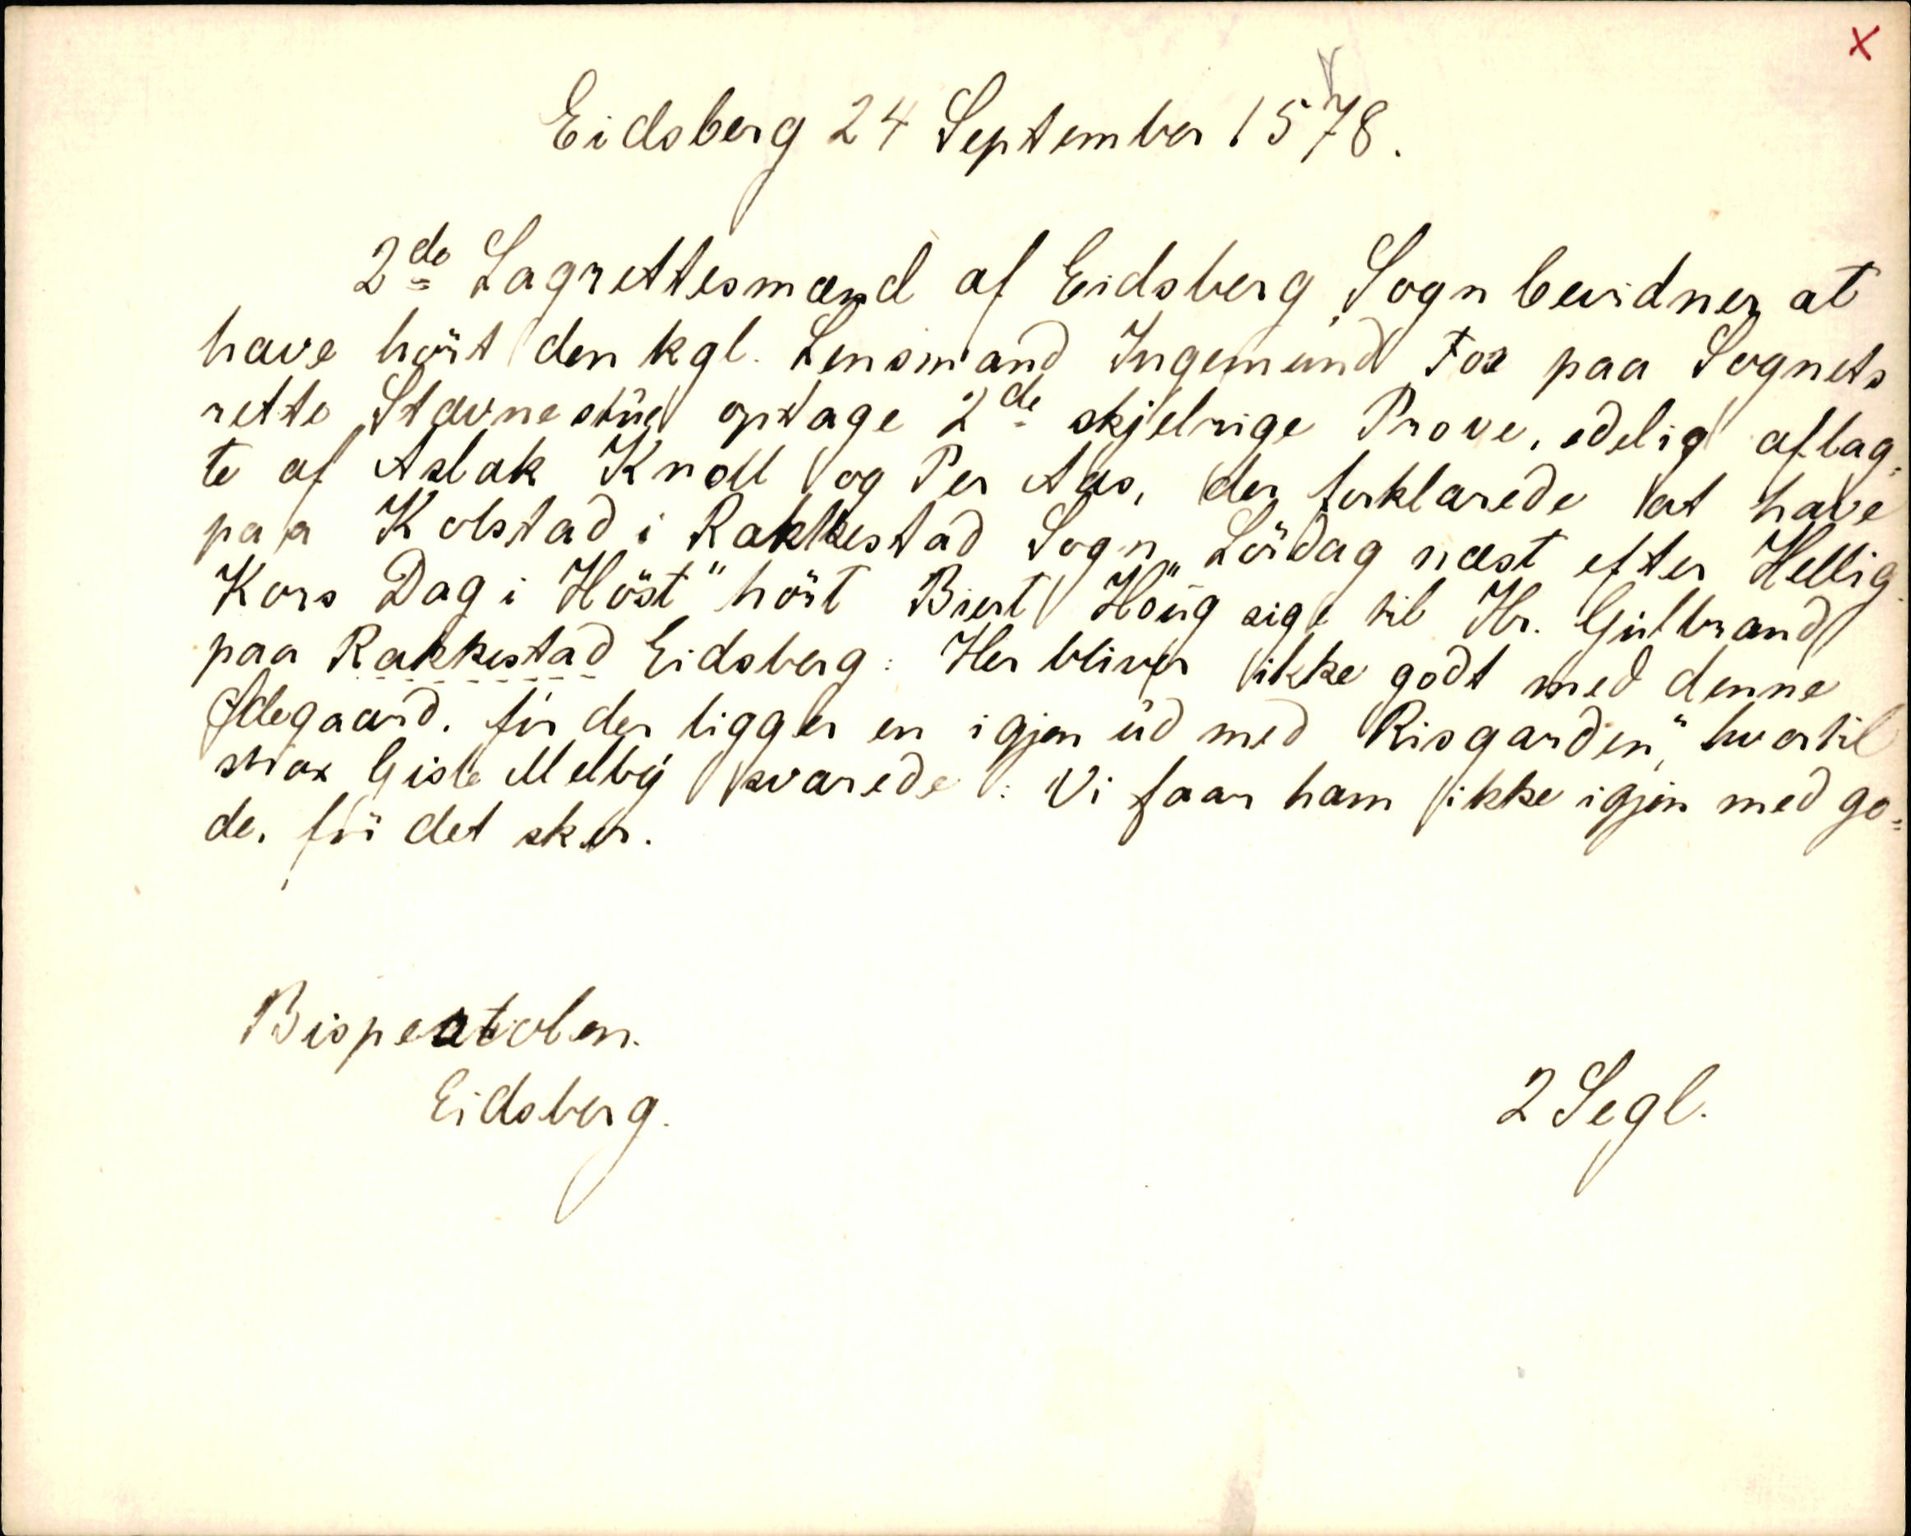 x
Eidsberg 24 September 1578.
2de Lagrettesmænd af Eidsberg Sogn bevidner at
have hört den kgl. Lensmand Ingemund Fos paa Sognets
rette Stævnestue optage 2de skjelrige Prove, edelig aflag-
te af Aslak Knoll og Per Aas, der forklarede at have
paa Kolstad i Rakkestad Sogn "Lördag næst efter Hellig
Kors Dag i Höst" hört Biert Houg sige til Hr. Gulbrand
paa Rakkestad Eidsberg: Her bliver ikke godt med denne
Ødegaard, för der ligger en igjen ud med Risgarden," hvortil
strax Gisle Melby svarede: Vi faar ham ikke igjen med go=
de, för det sker.
Bispestolen.
Eidsberg.
2 Segl.